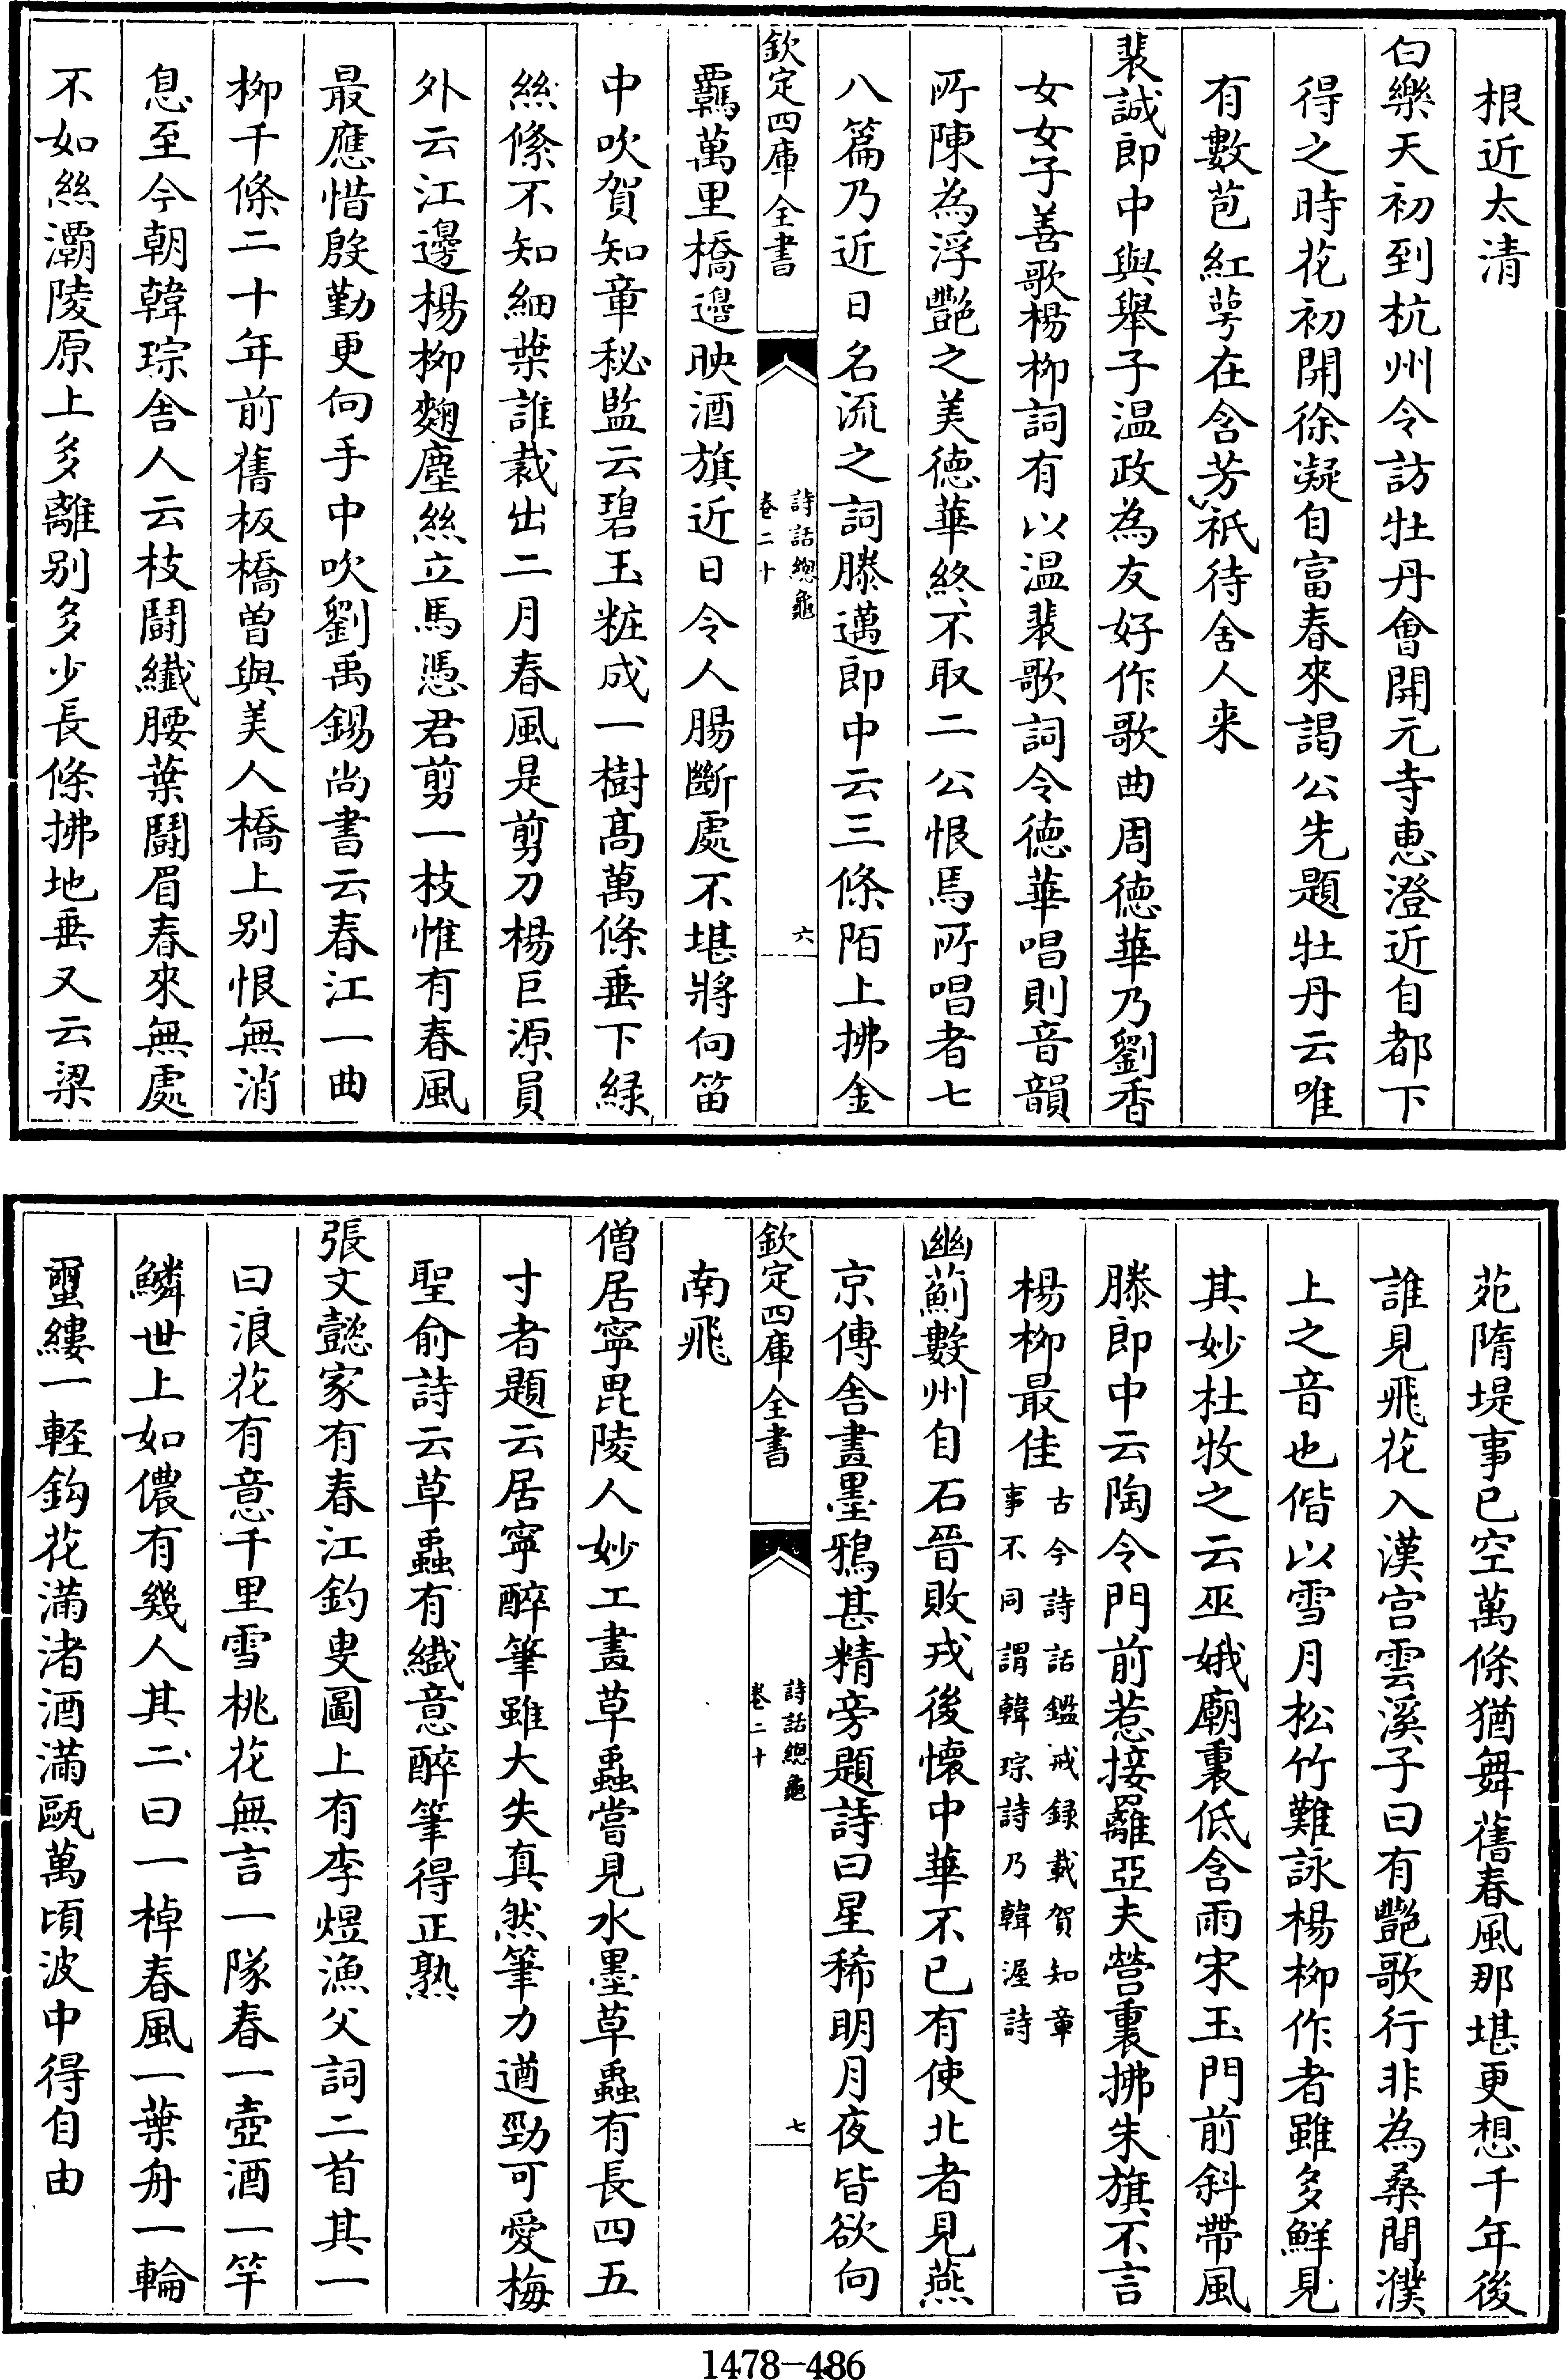 根近太清
白樂天初到杭州令訪牡丹㑹開元寺惠澄近自都下
得之時花初開徐凝自富春來謁公先題牡丹云唯
有數苞紅蕚在含芳祇待舍人来
裴諴郎中與舉子温政為友好作歌曲周徳華乃劉香
女女子善歌楊栁詞有以温裴歌詞令徳華唱則音韻
所陳為浮艷之美徳華終不取二公恨焉所唱者七
八篇乃近日名流之詞滕邁郎中云三條陌上拂金
欽定四庫全書
詩話總龜
卷二十
六
羈萬里橋邉映酒旗近日令人腸斷處不堪將向笛
中吹賀知章秘監云碧玉粧成一樹髙萬條垂下緑
絲絛不知細葉誰裁出二月春風是剪刀楊巨源員
外云江邊楊栁麴塵絲立馬憑君剪一枝惟有春風
最應惜殷勤更向手中吹劉禹錫尚書云春江一曲
栁千條二十年前舊板橋曽與美人橋上别恨無消
息至今朝韓琮舍人云枝鬭纎腰葉鬭眉春來無處
不如絲灞陵原上多離别多少長條拂地垂又云梁
苑隋堤事已空萬條猶舞舊春風那堪更想千年後
誰見飛花入漢宫雲溪子曰有艷歌行非為桑間濮
上之音也偕以雪月松竹難詠楊栁作者雖多鮮見
其妙杜牧之云巫娥廟裏低含雨宋玉門前斜帶風
滕郎中云陶令門前惹接䍦亞夫營裏拂朱旗不言
楊栁最佳
古今詩話鑑戒録載賀知章
事不同謂韓琮詩乃韓渥詩
幽薊數州自石晉敗戎後懷中華不已有使北者見燕
京傳舍畫墨鴉甚精旁題詩曰星稀明月夜皆欲向
欽定四庫全書
詩話總龜
卷二十
七
南飛
僧居寧毘陵人妙工畫草蟲嘗見水墨草蟲有長四五
寸者題云居寧醉筆雖大失真然筆力遒勁可愛梅
聖俞詩云草蟲有纎意醉筆得正熟
張文懿家有春江釣叟圖上有李煜漁父詞二首其一
曰浪花有意千里雪桃花無言一隊春一壺酒一竿
鱗世上如儂有幾人其二曰一棹春風一葉舟一輪
璽縷一輕鈎花滿渚酒滿甌萬頃波中得自由
1478-486